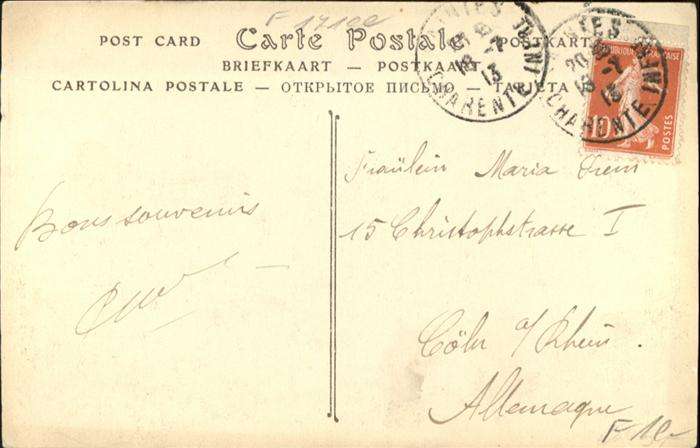 POST CARD Carte Postale POSTKARTE
BRIEFKAART — POSTKAART
CARTOLINA POSTALE — ОТКРЫТОЕ ПИСЬМО — TARJETA
CHARENTE INF
18-7
13
CHARENTE INF
20
18-7
13
10
POSTES
Bons souvenirs
Fraülein Maria
15 Christophstrasse I
Cöln a/Rhein
Allemagne